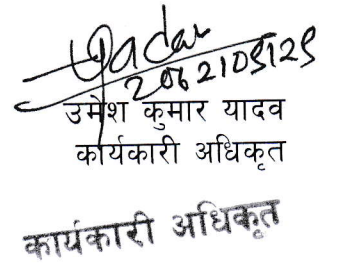 Yadav
2082/05/29
उमेश कुमार यादव
कार्यकारी अधिकृत
कार्यकारी अधिकृत